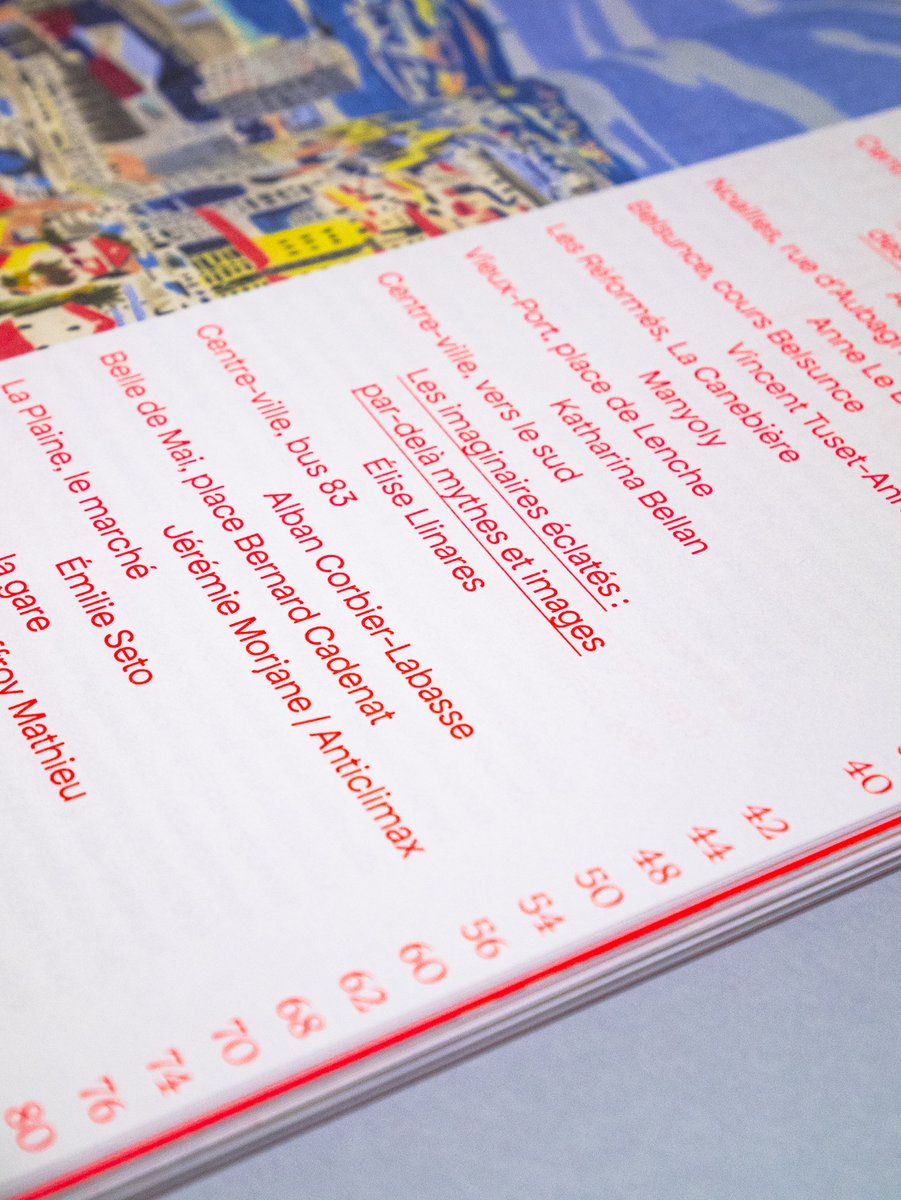 Noailles, rue
Anne Le
Belsunce, cours Belsunce
Vincent
Les Réformés, La Canebière
Manyoly
Vieux-Port, place de Lenche
Katharina Bellan
Centre-ville, vers le sud
Les imaginaires éclatés :
par-delà mythes et images
Élise Llinares
Centre-ville, bus 83
Alban Corbier-Labasse
Belle de Mai, place Bernard Cadenat
Jérémie Morjane / Anticlimax
La Plaine, le marché
Émilie Seto
la gare
Mathieu
40
42
44
48
50
54
56
60
62
68
70
74
76
80